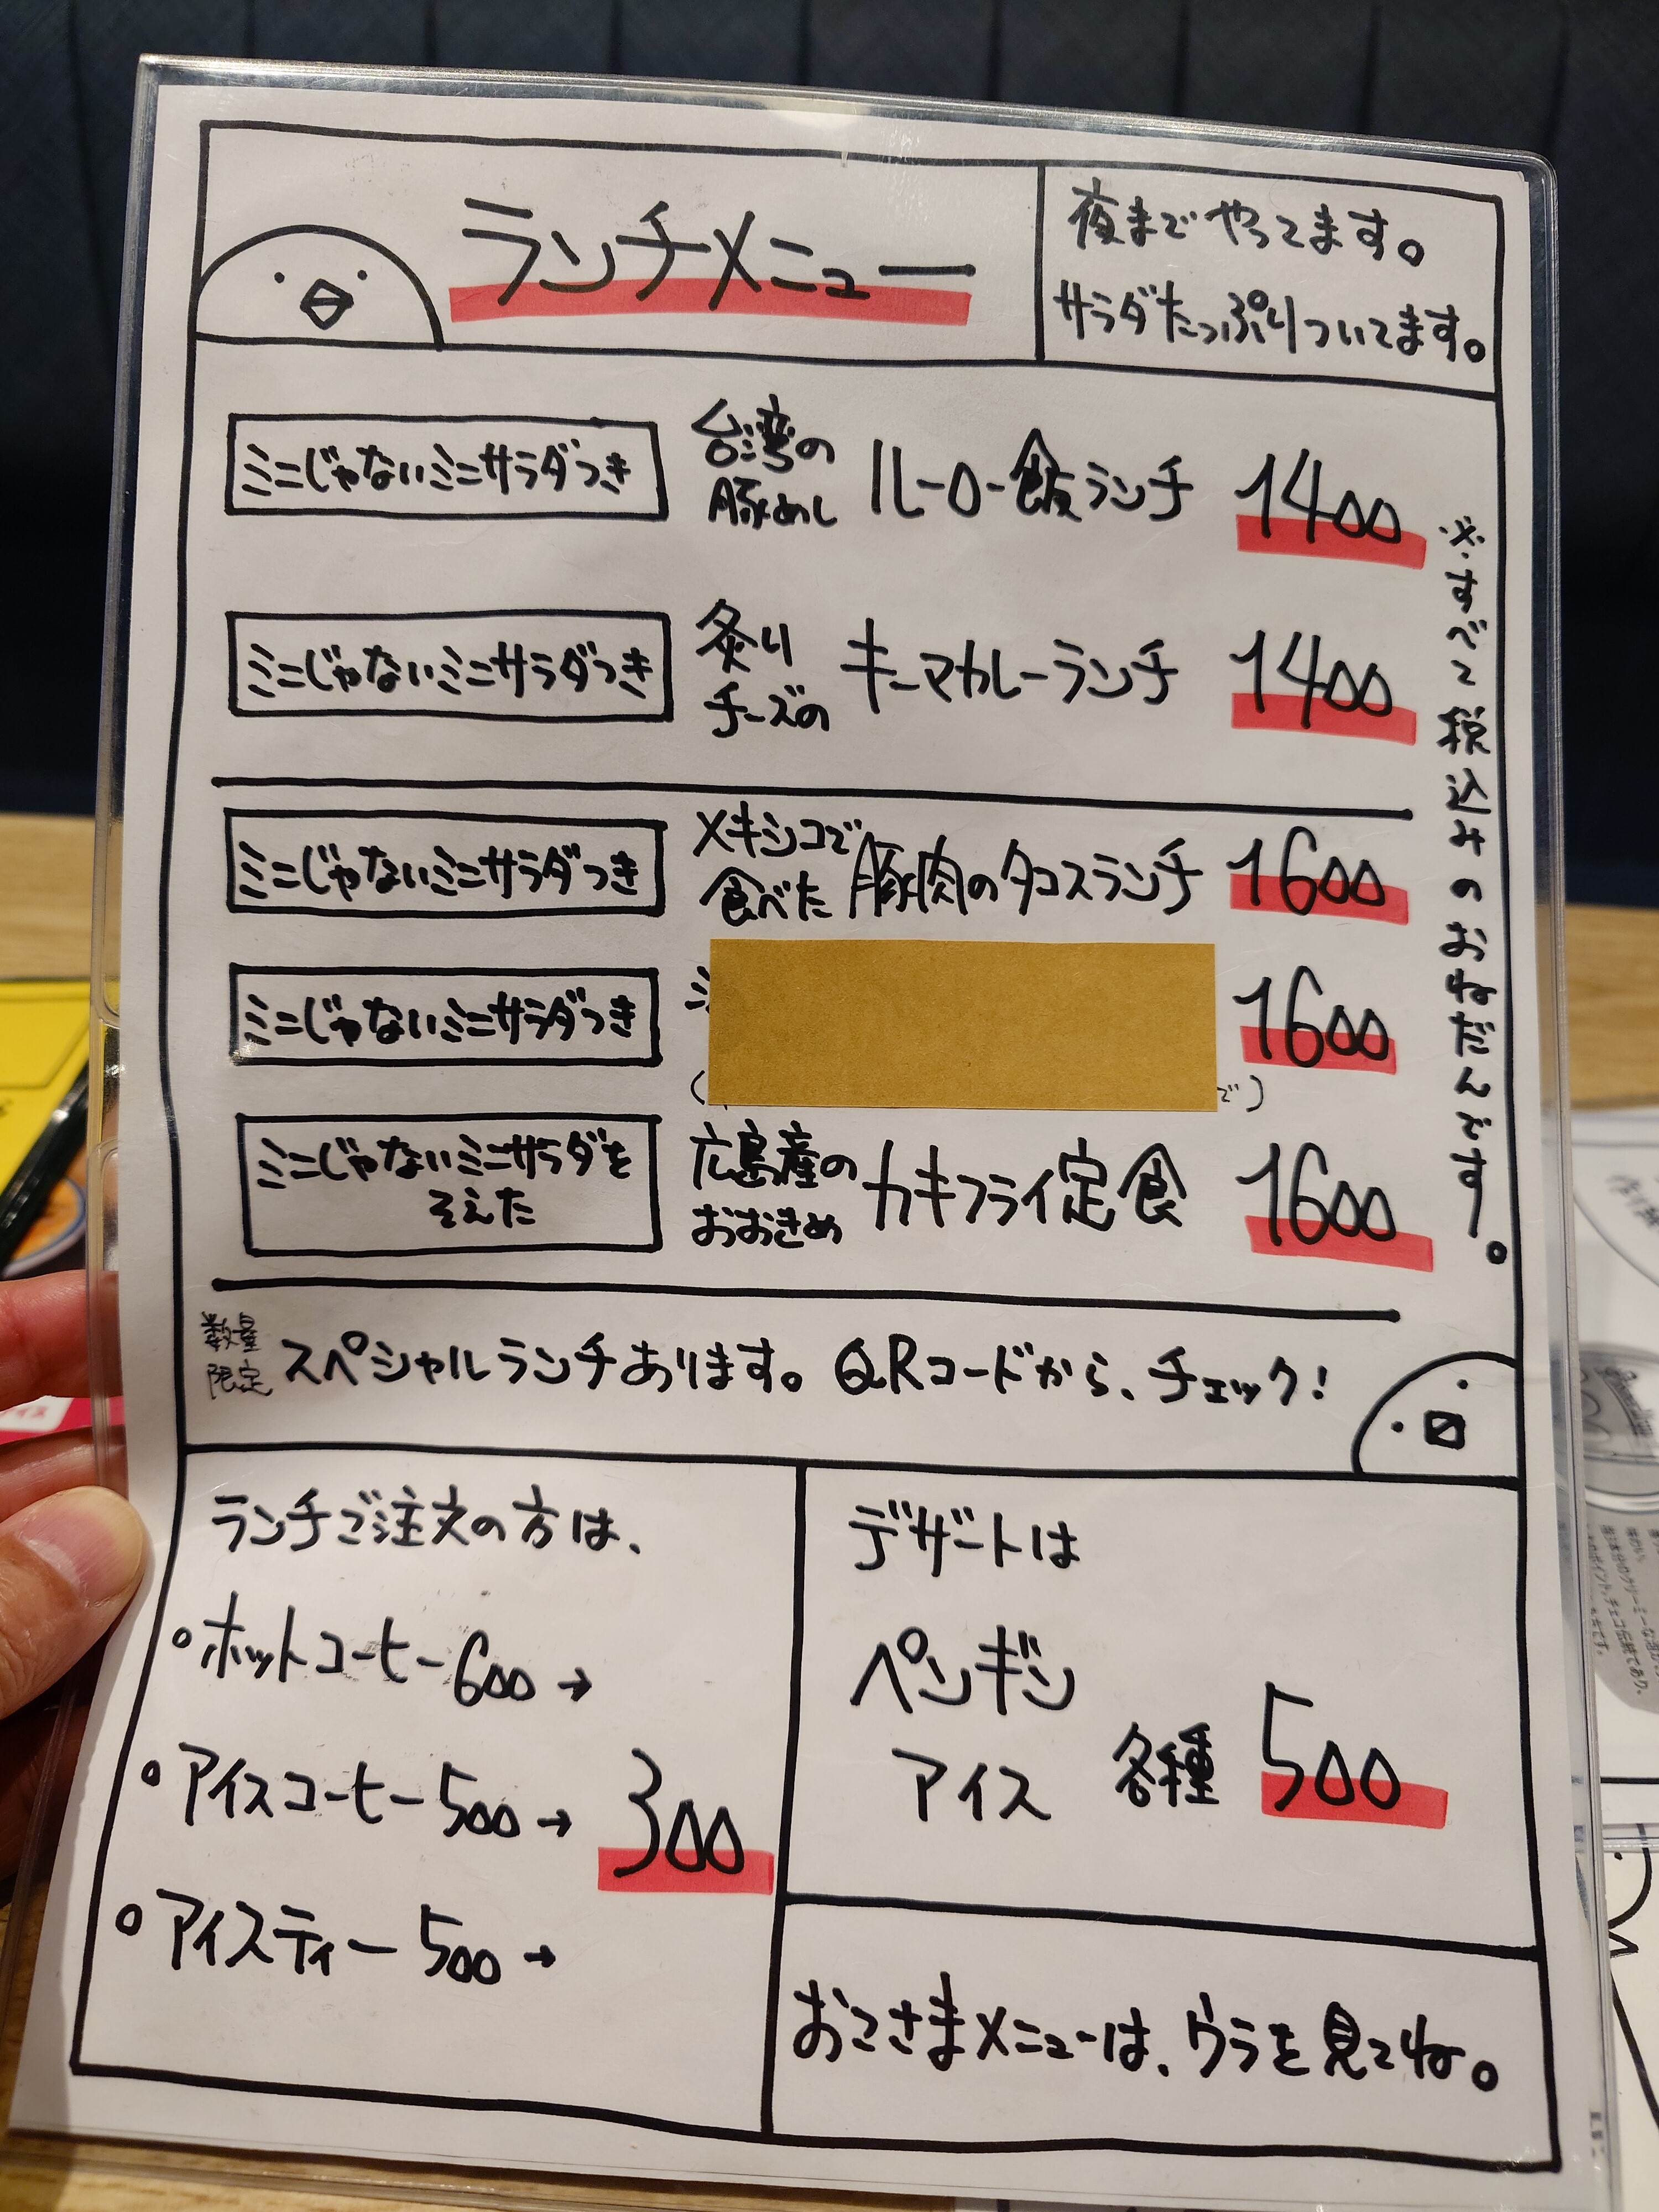 ランチメニュー
夜までやってます。
サラダたっぷりついてます。
ミニじゃないミニサラダつき
台湾の
豚めし
ルーロー飯ランチ 1400
ミニじゃないミニサラダつき
炙り
チーズの
キーマカレーランチ 1400
ミニじゃないミニサラダつき
メキシコで
食べた
豚肉のタコスランチ 1600
ミニじゃないミニサラダつき
1600
ミニじゃないミニサラダを
そえた
広島産の
おおきめ
カキフライ定食 1600
※すべて税込みのおねだんです。
数量
限定
スペシャルランチあります。QRコードから、チェック!
ランチご注文の方は、
・ホットコーヒー600→
・アイスコーヒー500→
300
・アイスティー500→
デザートは
ペンギン
アイス 各種 500
おこさまメニューは、ウラを見てね。